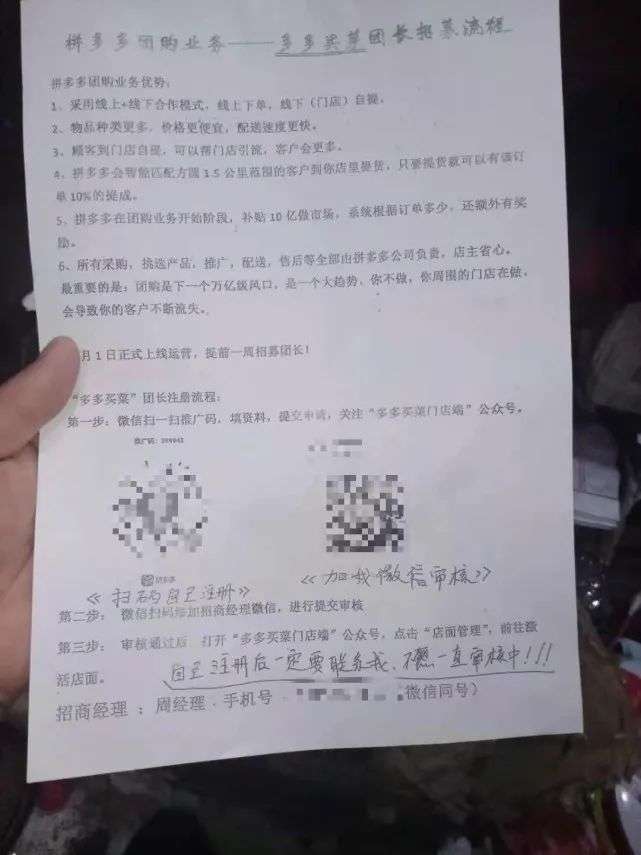 拼多多团购业务——多多买菜团长招募流程
拼多多团购业务优势：
1、采用线上+线下合作模式，线上下单，线下（门店）自提。
2、物品种类更多，价格更便宜，配送速度更快。
3、顾客到门店自提，可以帮门店引流，客户会更多。
4、拼多多会智能匹配方圆 1.5 公里范围的客户到你店里提货，只要提货就可以有该订
单 10%的提成。
5、拼多多在团购业务开始阶段，补贴 10 亿做市场，系统根据订单多少，还额外有奖
励。
6、所有采购，挑选产品，推广，配送，售后等全部由拼多多公司负责，店主省心。
最重要的是：团购是下一个万亿级风口，是一个大趋势，你不做，你周围的门店在做，
会导致你的客户不断流失。
月 1 日正式上线运营，提前一周招募团长！
“多多买菜”团长注册流程：
第一步：微信扫一扫推广码，填资料，提交申请，关注“多多买菜门店端”公众号。
推广码：
《扫码自己注册》 《加我微信审核》
第二步： 微信扫码添加招商经理微信，进行提交审核
第三步： 审核通过后，打开“多多买菜门店端”公众号，点击“店面管理”，前往激
活店面。
自己注册后一定要联系我、不然一直审核中!!!
招商经理 ：周经理 . 手机号 微信同号）